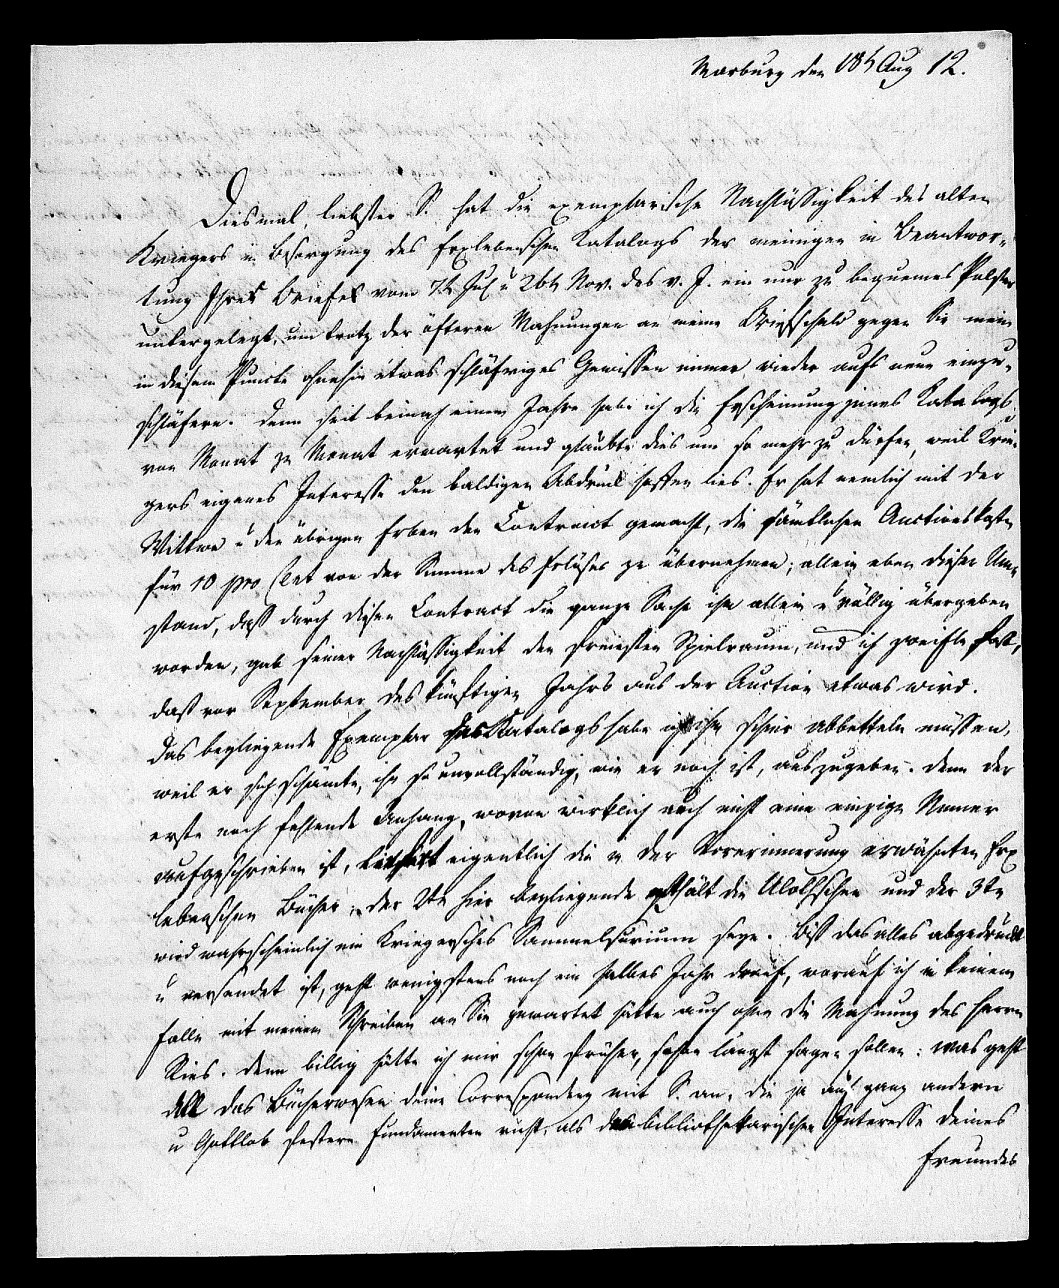 Marburg den 18t Aug 12.
Diesmal, liebster S. hat die exemplarische Nachlässigkeit des alten
Kriegers in Besorgung des Erxlebenschen Katalogs der meinigen in Beantwor-
tung Ihres Briefes vom 7t Jul u 26t Nov. des v. J. ein nur zu bequemes Polster
untergelegt, um trotz der öfteren Mahnungen an meine Briefschuld gegen Sie mein
in diesem Puncte ohnehin etwas schläfriges Gewissen immer wieder aufs neue einzu-
schläfern. Denn seit beinah einem Jahre habe ich die Erscheinung jenes Katalogs
von Monat zu Monat erwartet und glaubte dies um so mehr zu dürfen, weil Krie-
gers eigenes Interesse den baldigen Abdruck hoffen lies. Er hat nemlich mit der
Wittwe u den übrigen Erben den Contract gemacht, die sämtlichen Auctionskosten
für 10 pro Cent von der Summe des Erlöses zu übernehmen; allein eben dieser Um-
stand, daß durch diesen Contract die ganze Sache ihm allein u völlig übergeben
worden, gab seiner Nachlässigkeit den freiesten Spielraum, und ich zweifle fast,
daß vor September des künftigen Jahrs aus der Auction etwas wird.
Das beyliegende Exemplar des Katalogs habe ich ihm schier abbetteln müssen,
weil er sich schämte, ihn so unvollständig, wie er noch ist, auszugeben. Denn der
erste noch fehlende Anhang, wovon wirklich auch nicht eine einzige Numer
aufgeschrieben ist, enthält eigentlich die in der Vorerinnerung erwähnten Erx
lebenschen Bücher; der 2te hier beyliegende enthält die Wolfschen und der 3te
wird wahrscheinlich ein Kriegersches Sammelsurium seyn. Bis das alles abgedruckt
u versendet ist, geht wenigstens noch ein halbes Jahr drauf, worauf ich in keinem
Falle mit meinem Schreiben an Sie gewartet hätte auch ohne die Mahnung des Herrn
Ries. Denn billig hätte ich mir schon früher, schon längst sagen sollen: was geht
all das Bücherwesen deine Correspondenz mit S. an, die ja auf ganz andern
u Gottlob festern Fundamenten ruht, als dem bibliothekarischen Interesse deines
Freundes